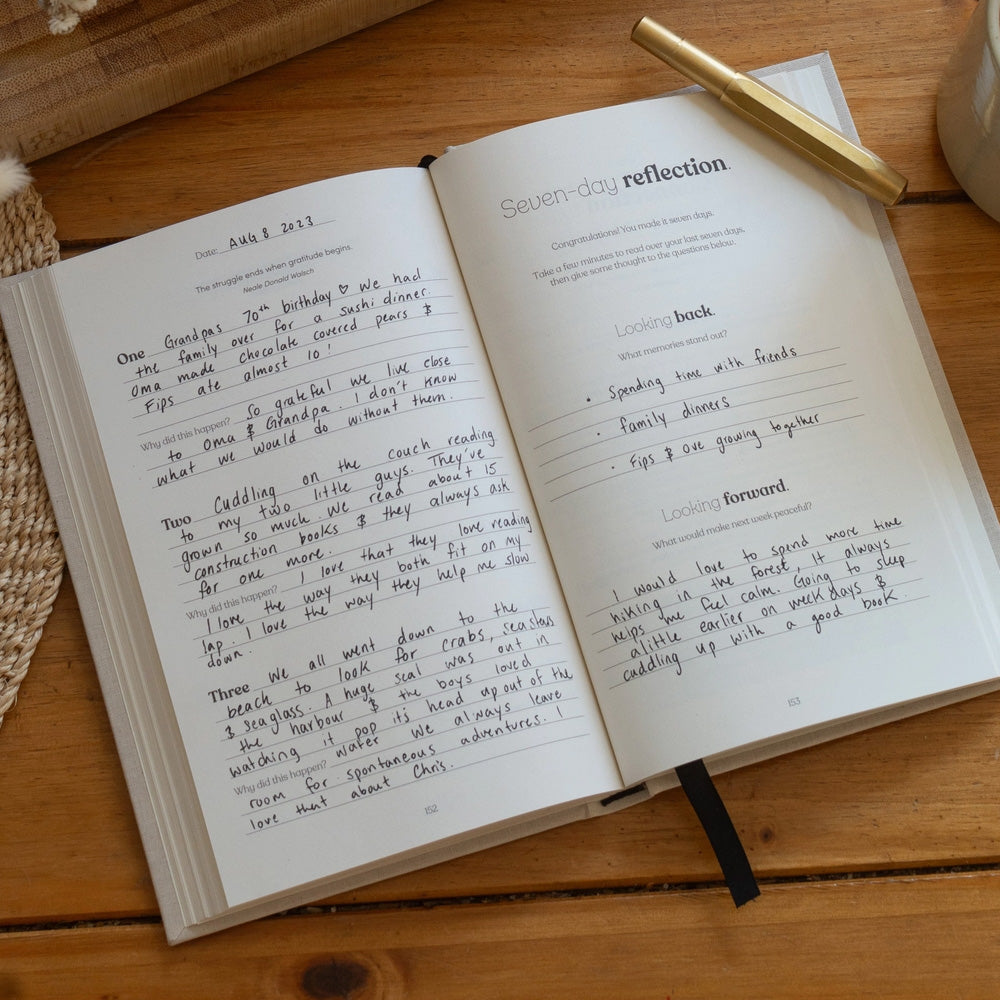 Date: AUG 8 2023
The struggle ends when gratitude begins.
Neale Donald Walsch
One Grandpas 70th birthday ♡ We had
the family over for a sushi dinner.
Oma made chocolate covered pears &
Fips ate almost 10!
Why did this happen? So grateful we live close
to Oma & Grandpa. I don't know
what we would do without them.
Two Cuddling on the couch reading
to my two little guys. They've
grown so much. We read about 15
construction books & they always ask
for one more.
Why did this happen? I love that they love reading
I love the way they both fit on my
lap. I love the way they help me slow
down.
Three We all went down to the
beach to look for crabs, seastars
& seaglass. A huge seal was out in
the harbour & the boys loved
watching it pop it's head up out of the
water
Why did this happen? We always leave
room for spontaneous adventures. I
love that about Chris.
152
Seven-day reflection.
Congratulations! You made it seven days.
Take a few minutes to read over your last seven days,
then give some thought to the questions below.
Looking back.
What memories stand out?
• Spending time with friends
• family dinners
• Fips & Ove growing together
Looking forward.
What would make next week peaceful?
I would love to spend more time
hiking in the forest, It always
helps me feel calm. Going to sleep
a little earlier on weekdays &
cuddling up with a good book.
153